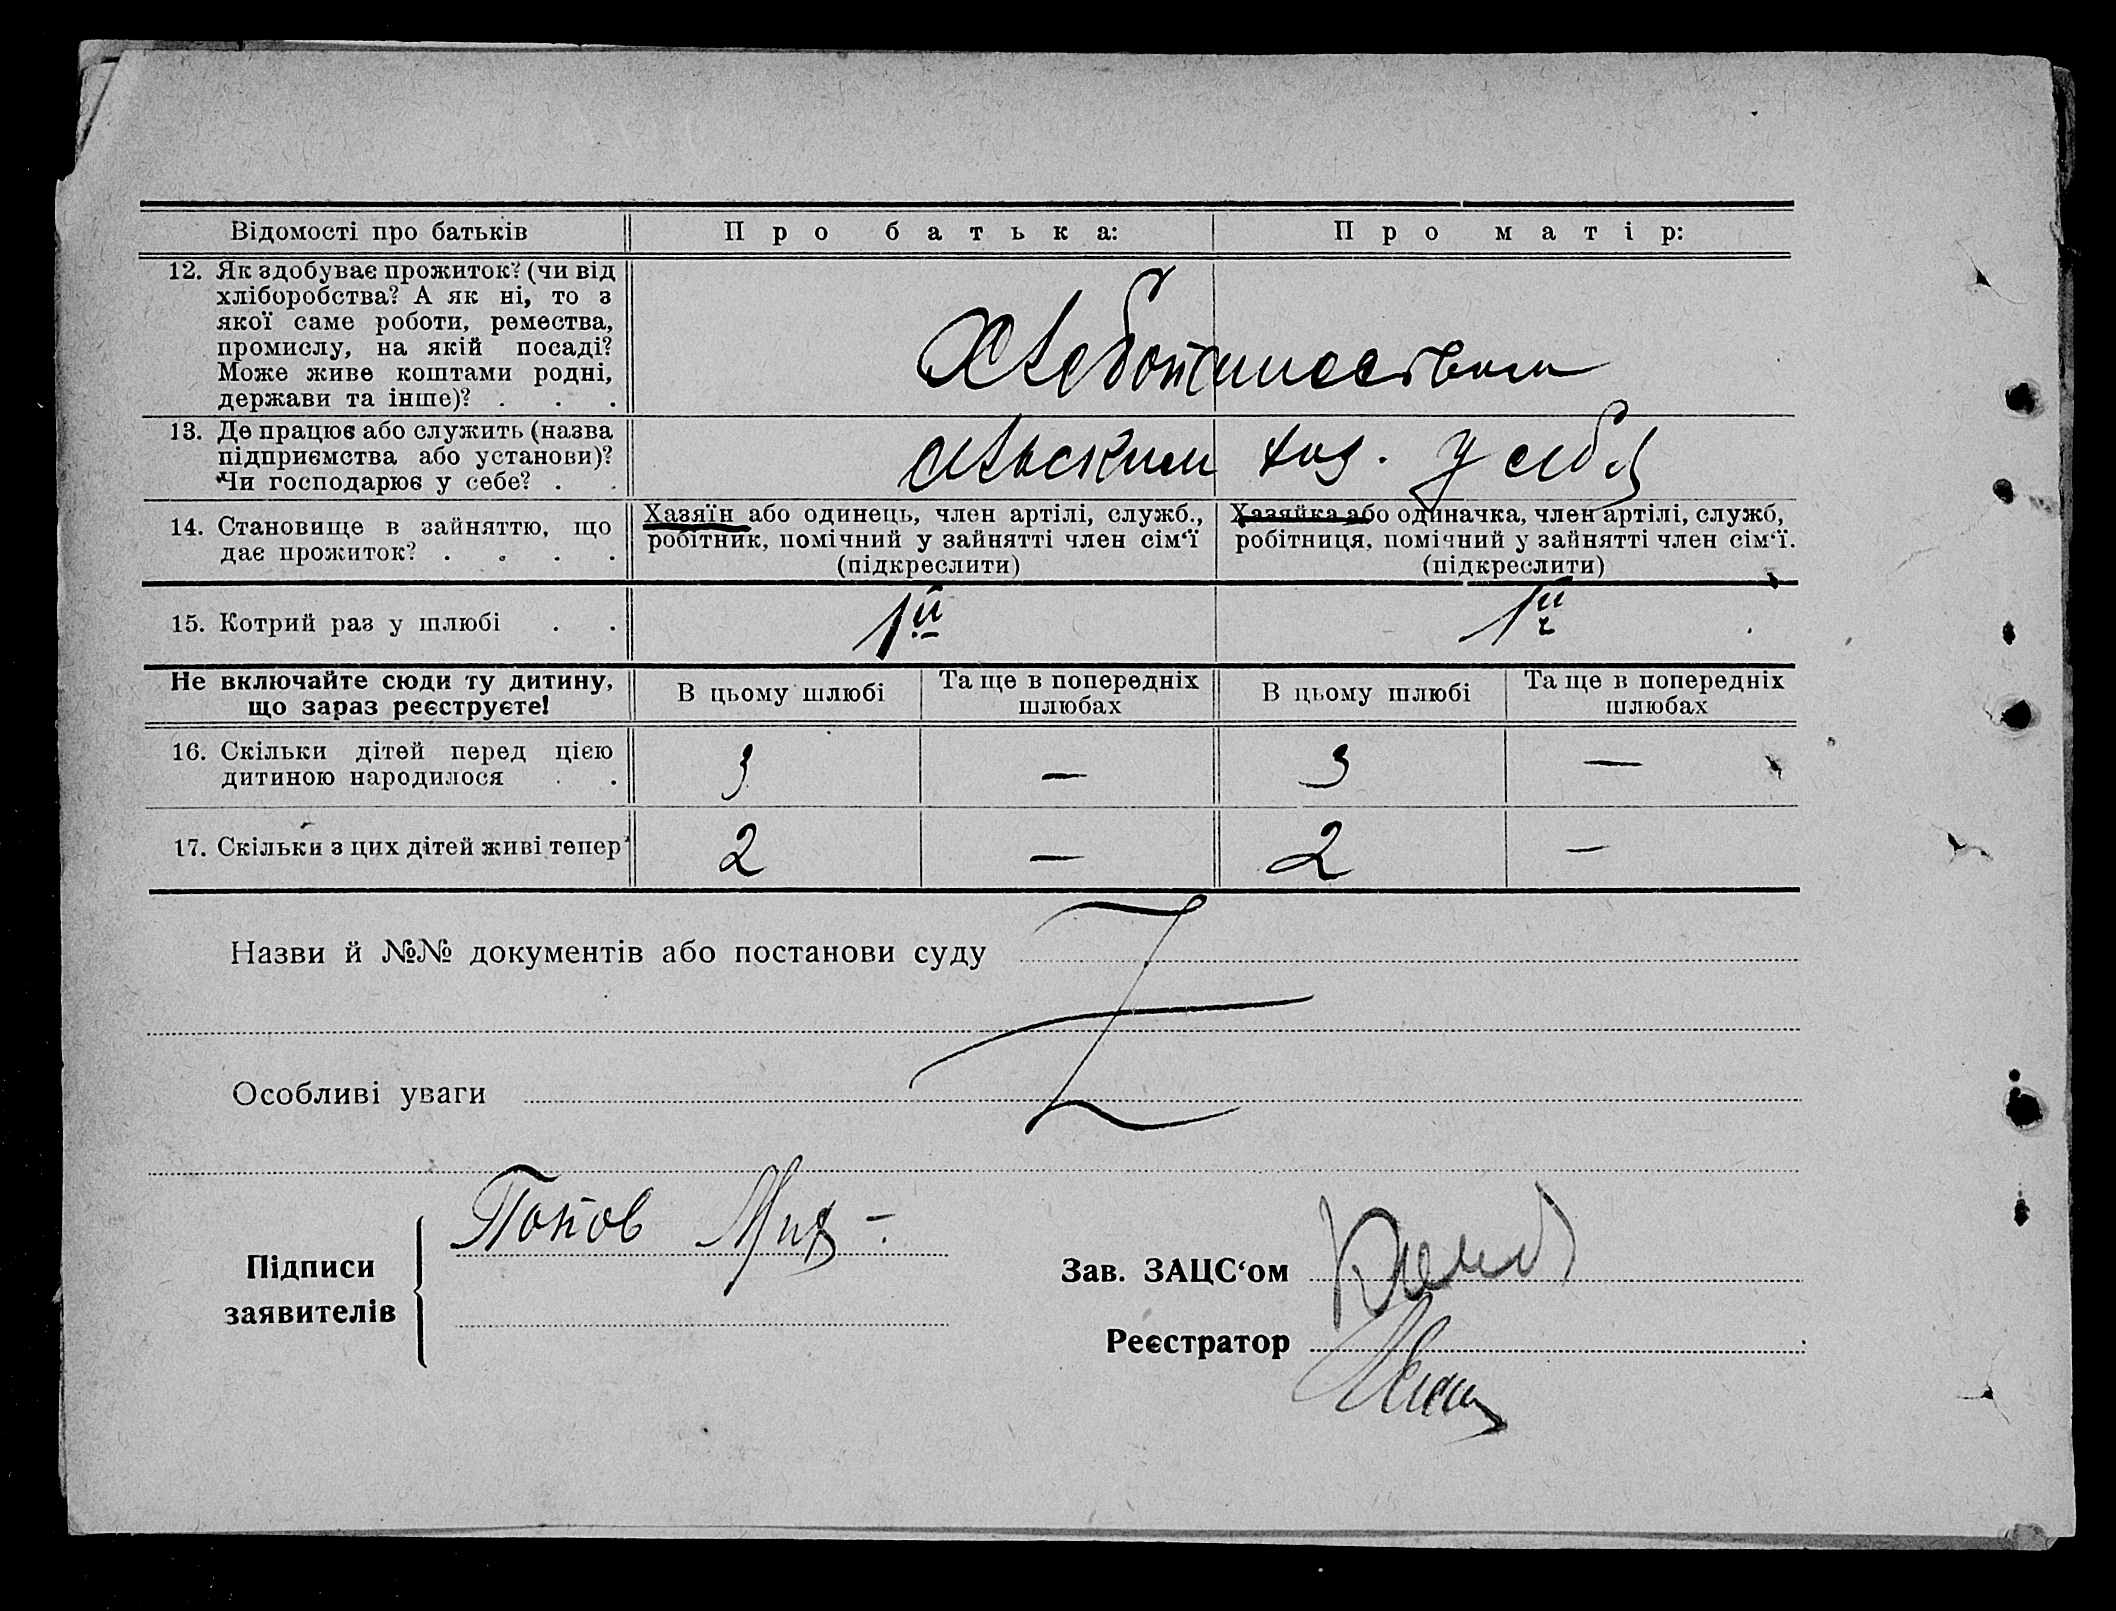 Відомості про батьків
Про батька:
Про матір:
12. Як здобуває прожиток? (чи від
хліборобства? А як ні, то з
якої саме роботи, ремества,
промислу, на якій посаді?
Може живе коштами родні,
держави та інше)? . . .
Хлебопашеством
13. Де працює або служить (назва
підприємства або установи)?
Чи господарює у себе? . .
сельским хоз. у себя
14. Становище в зайняттю, що
дає прожиток? . . . .
Хазяїн або одинець, член артілі, служб.,
робітник, помічний у зайнятті член сім‘ї
(підкреслити)
Хазяйка або одиначка, член артілі, служб,
робітниця, помічний у зайнятті член сім‘ї.
(підкреслити)
15. Котрий раз у шлюбі . .
1й
1й
Не включайте сюди ту дитину,
що зараз реєструєте!
В цьому шлюбі
Та ще в попередніх
шлюбах
В цьому шлюбі
Та ще в попередніх
шлюбах
16. Скільки дітей перед цією
дитиною народилося . .
3 — 3 —
17. Скільки з цих дітей живі тепер
2 — 2 —
Назви й №№ документів або постанови суду
Особливі уваги
Підписи
заявителів
Попов Мих -
Зав. ЗАЦС‘ом
Реєстратор